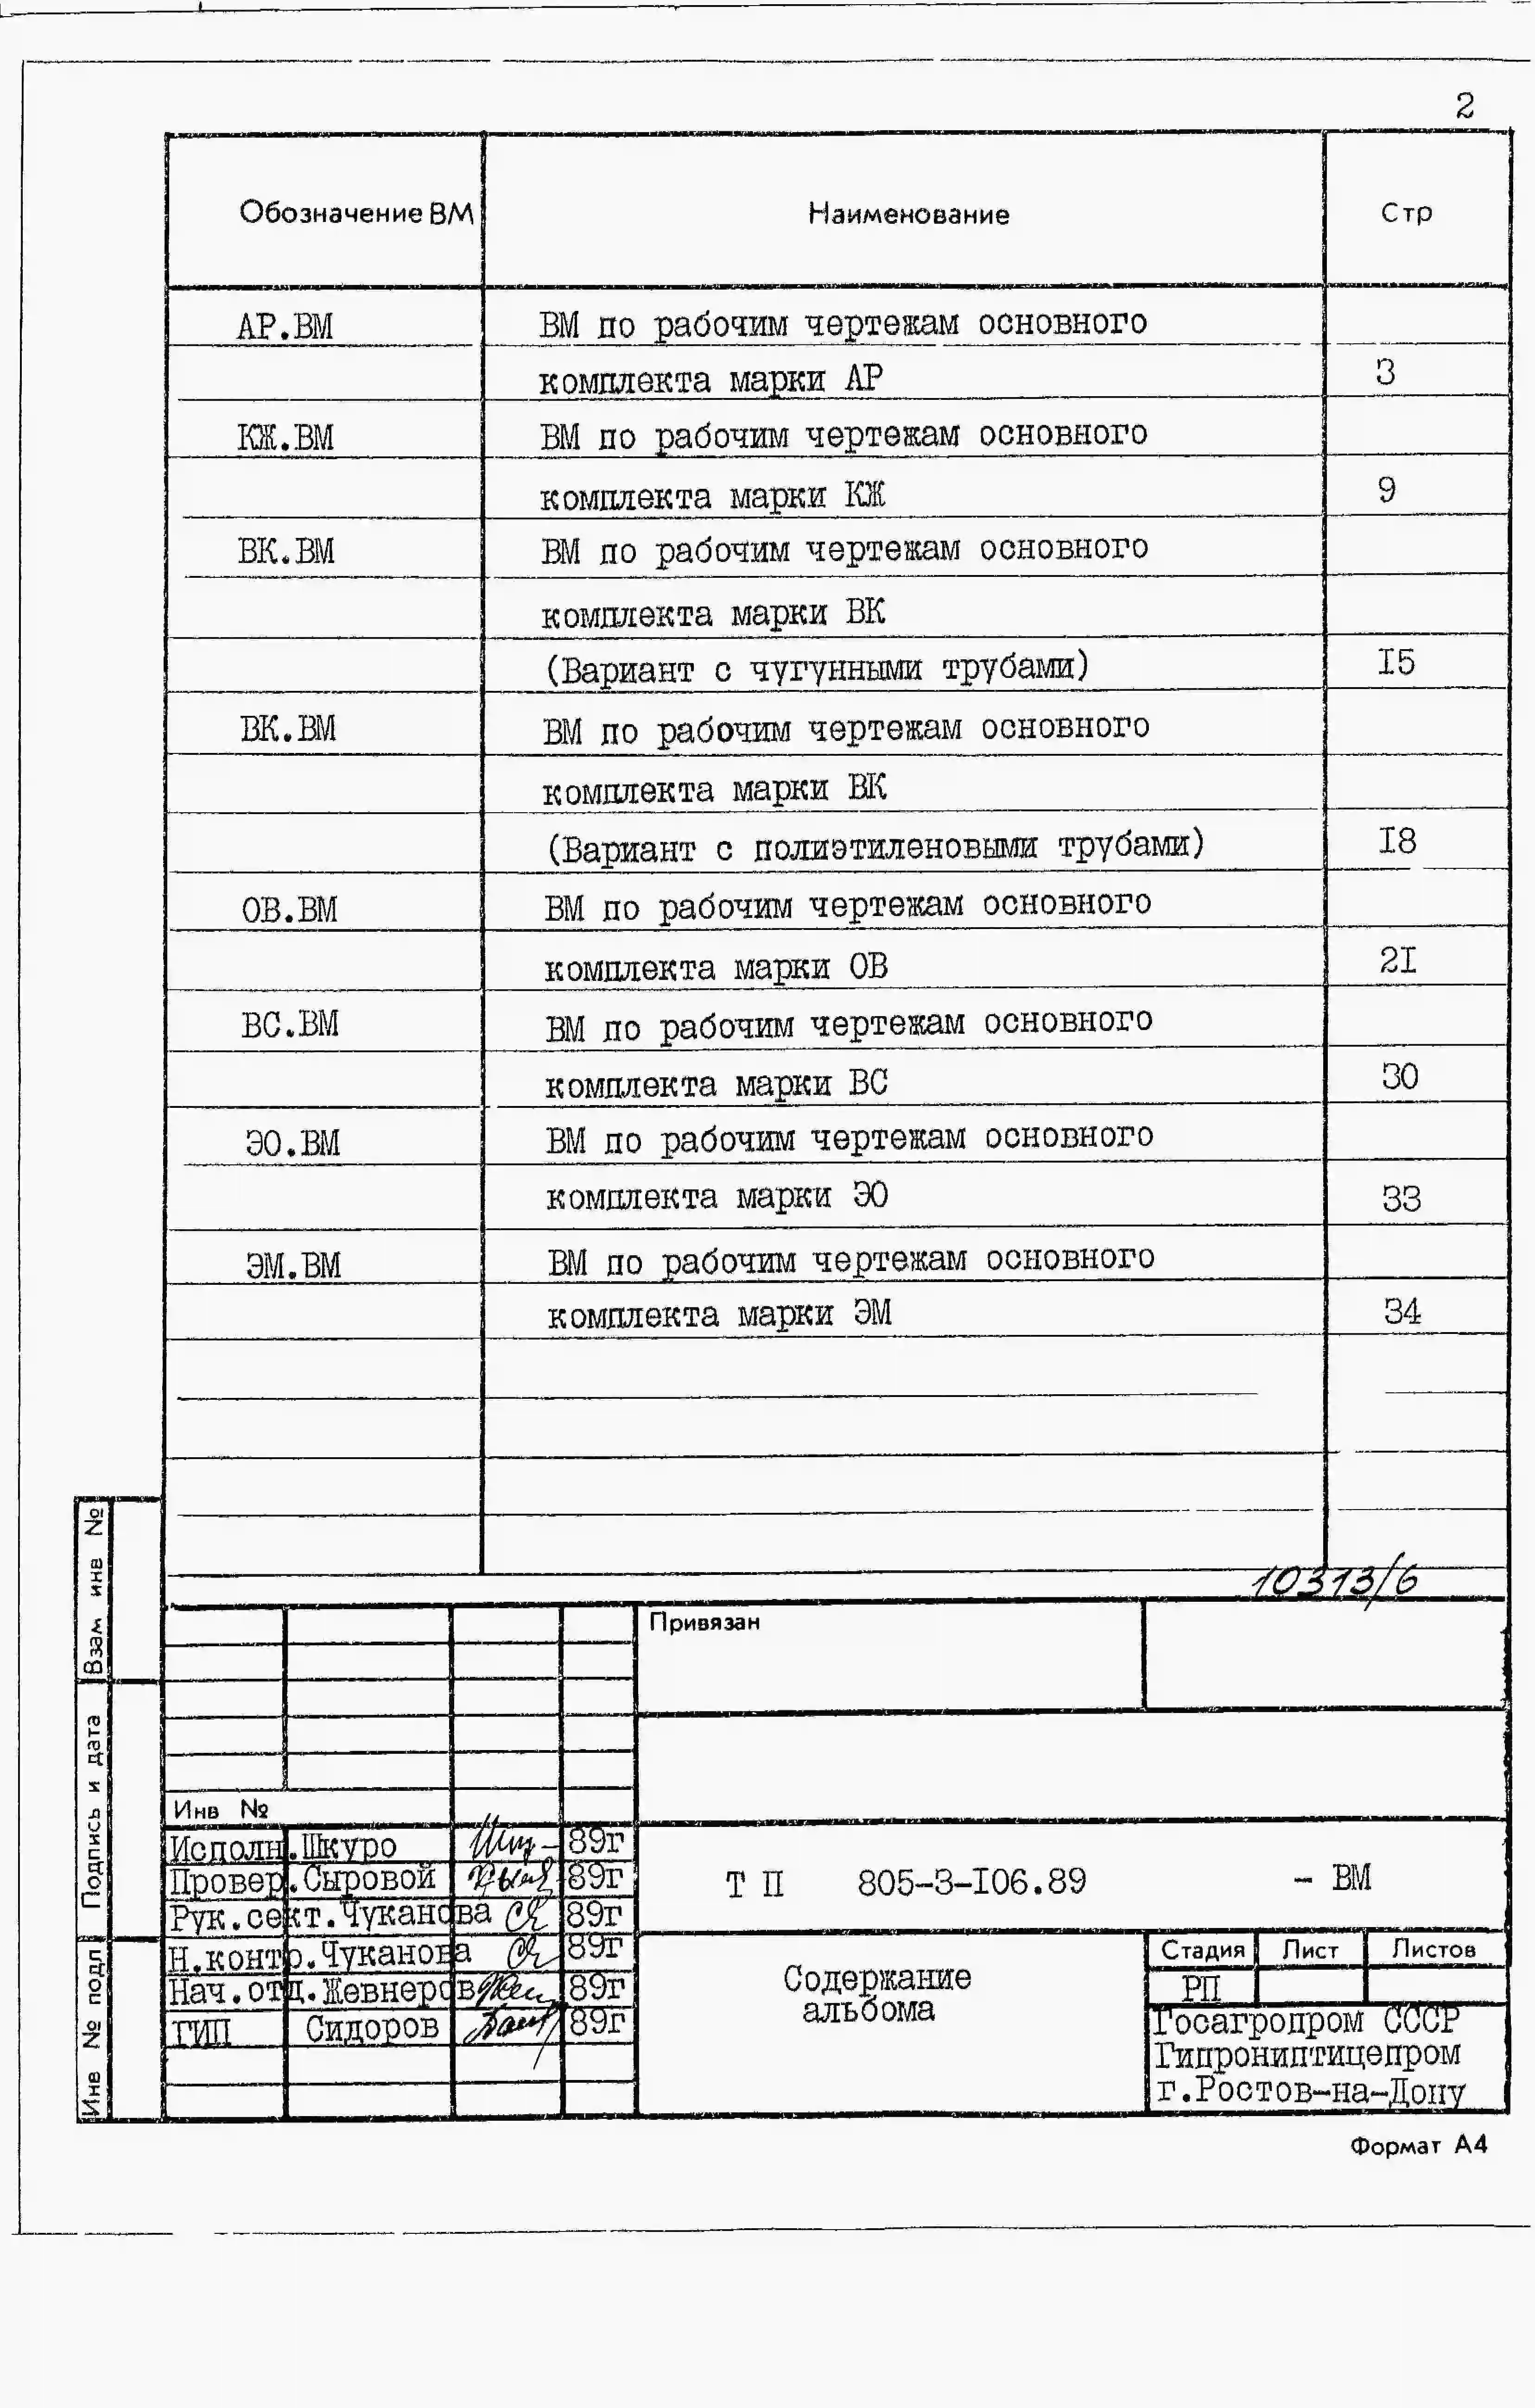 2
Обозначение ВМ Наименование Стр
АР.ВМ ВМ по рабочим чертежам основного
комплекта марки АР 3
КЖ.ВМ ВМ по рабочим чертежам основного
комплекта марки КЖ 9
ВК.ВМ ВМ по рабочим чертежам основного
комплекта марки ВК
(Вариант с чугунными трубами) I5
ВК.ВМ ВМ по рабочим чертежам основного
комплекта марки ВК
(Вариант с полиэтиленовыми трубами) I8
ОВ.ВМ ВМ по рабочим чертежам основного
комплекта марки ОВ 2I
ВС.ВМ ВМ по рабочим чертежам основного
комплекта марки ВС 30
ЭО.ВМ ВМ по рабочим чертежам основного
комплекта марки ЭО 33
ЭМ.ВМ ВМ по рабочим чертежам основного
комплекта марки ЭМ 34
10313/6
Привязан
Инв №
Исполн. Шкуро 89г
Провер. Сыровой 89г
Рук.сект. Чуканова 89г
Н.контр. Чуканова 89г
Нач.отд. Жевнеров 89г
ГИП Сидоров 89г
Т П 805-3-I06.89 - ВМ
Содержание
альбома
Стадия Лист Листов
РП
Госагропром СССР
Гипрониптицепром
г.Ростов-на-Дону
Взам инв №
Подпись и дата
Инв № подл
Формат А4